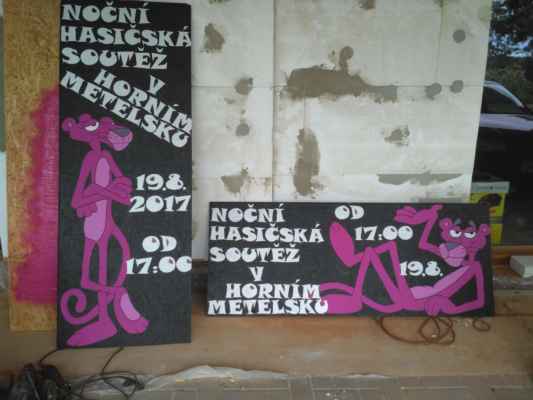 NOČNÍ
HASIČSKÁ
SOUTĚŽ
V
HORNÍM
METELSKU
19.8.
2017
OD
17:00
NOČNÍ
HASIČSKÁ
SOUTĚŽ
V
HORNÍM
METELSKU
OD
17.00
19.8.